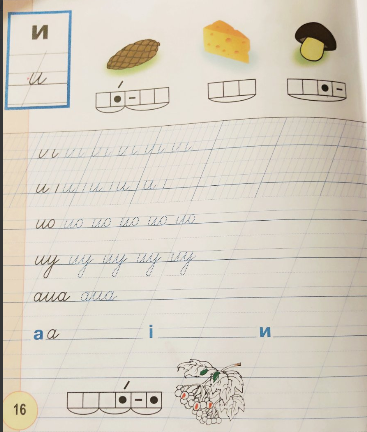 и
и
и и и и и и и
и и и и и и и
ио ио ио ио ио ио
иу иу иу иу иу
аиа аиа
а а і и
16